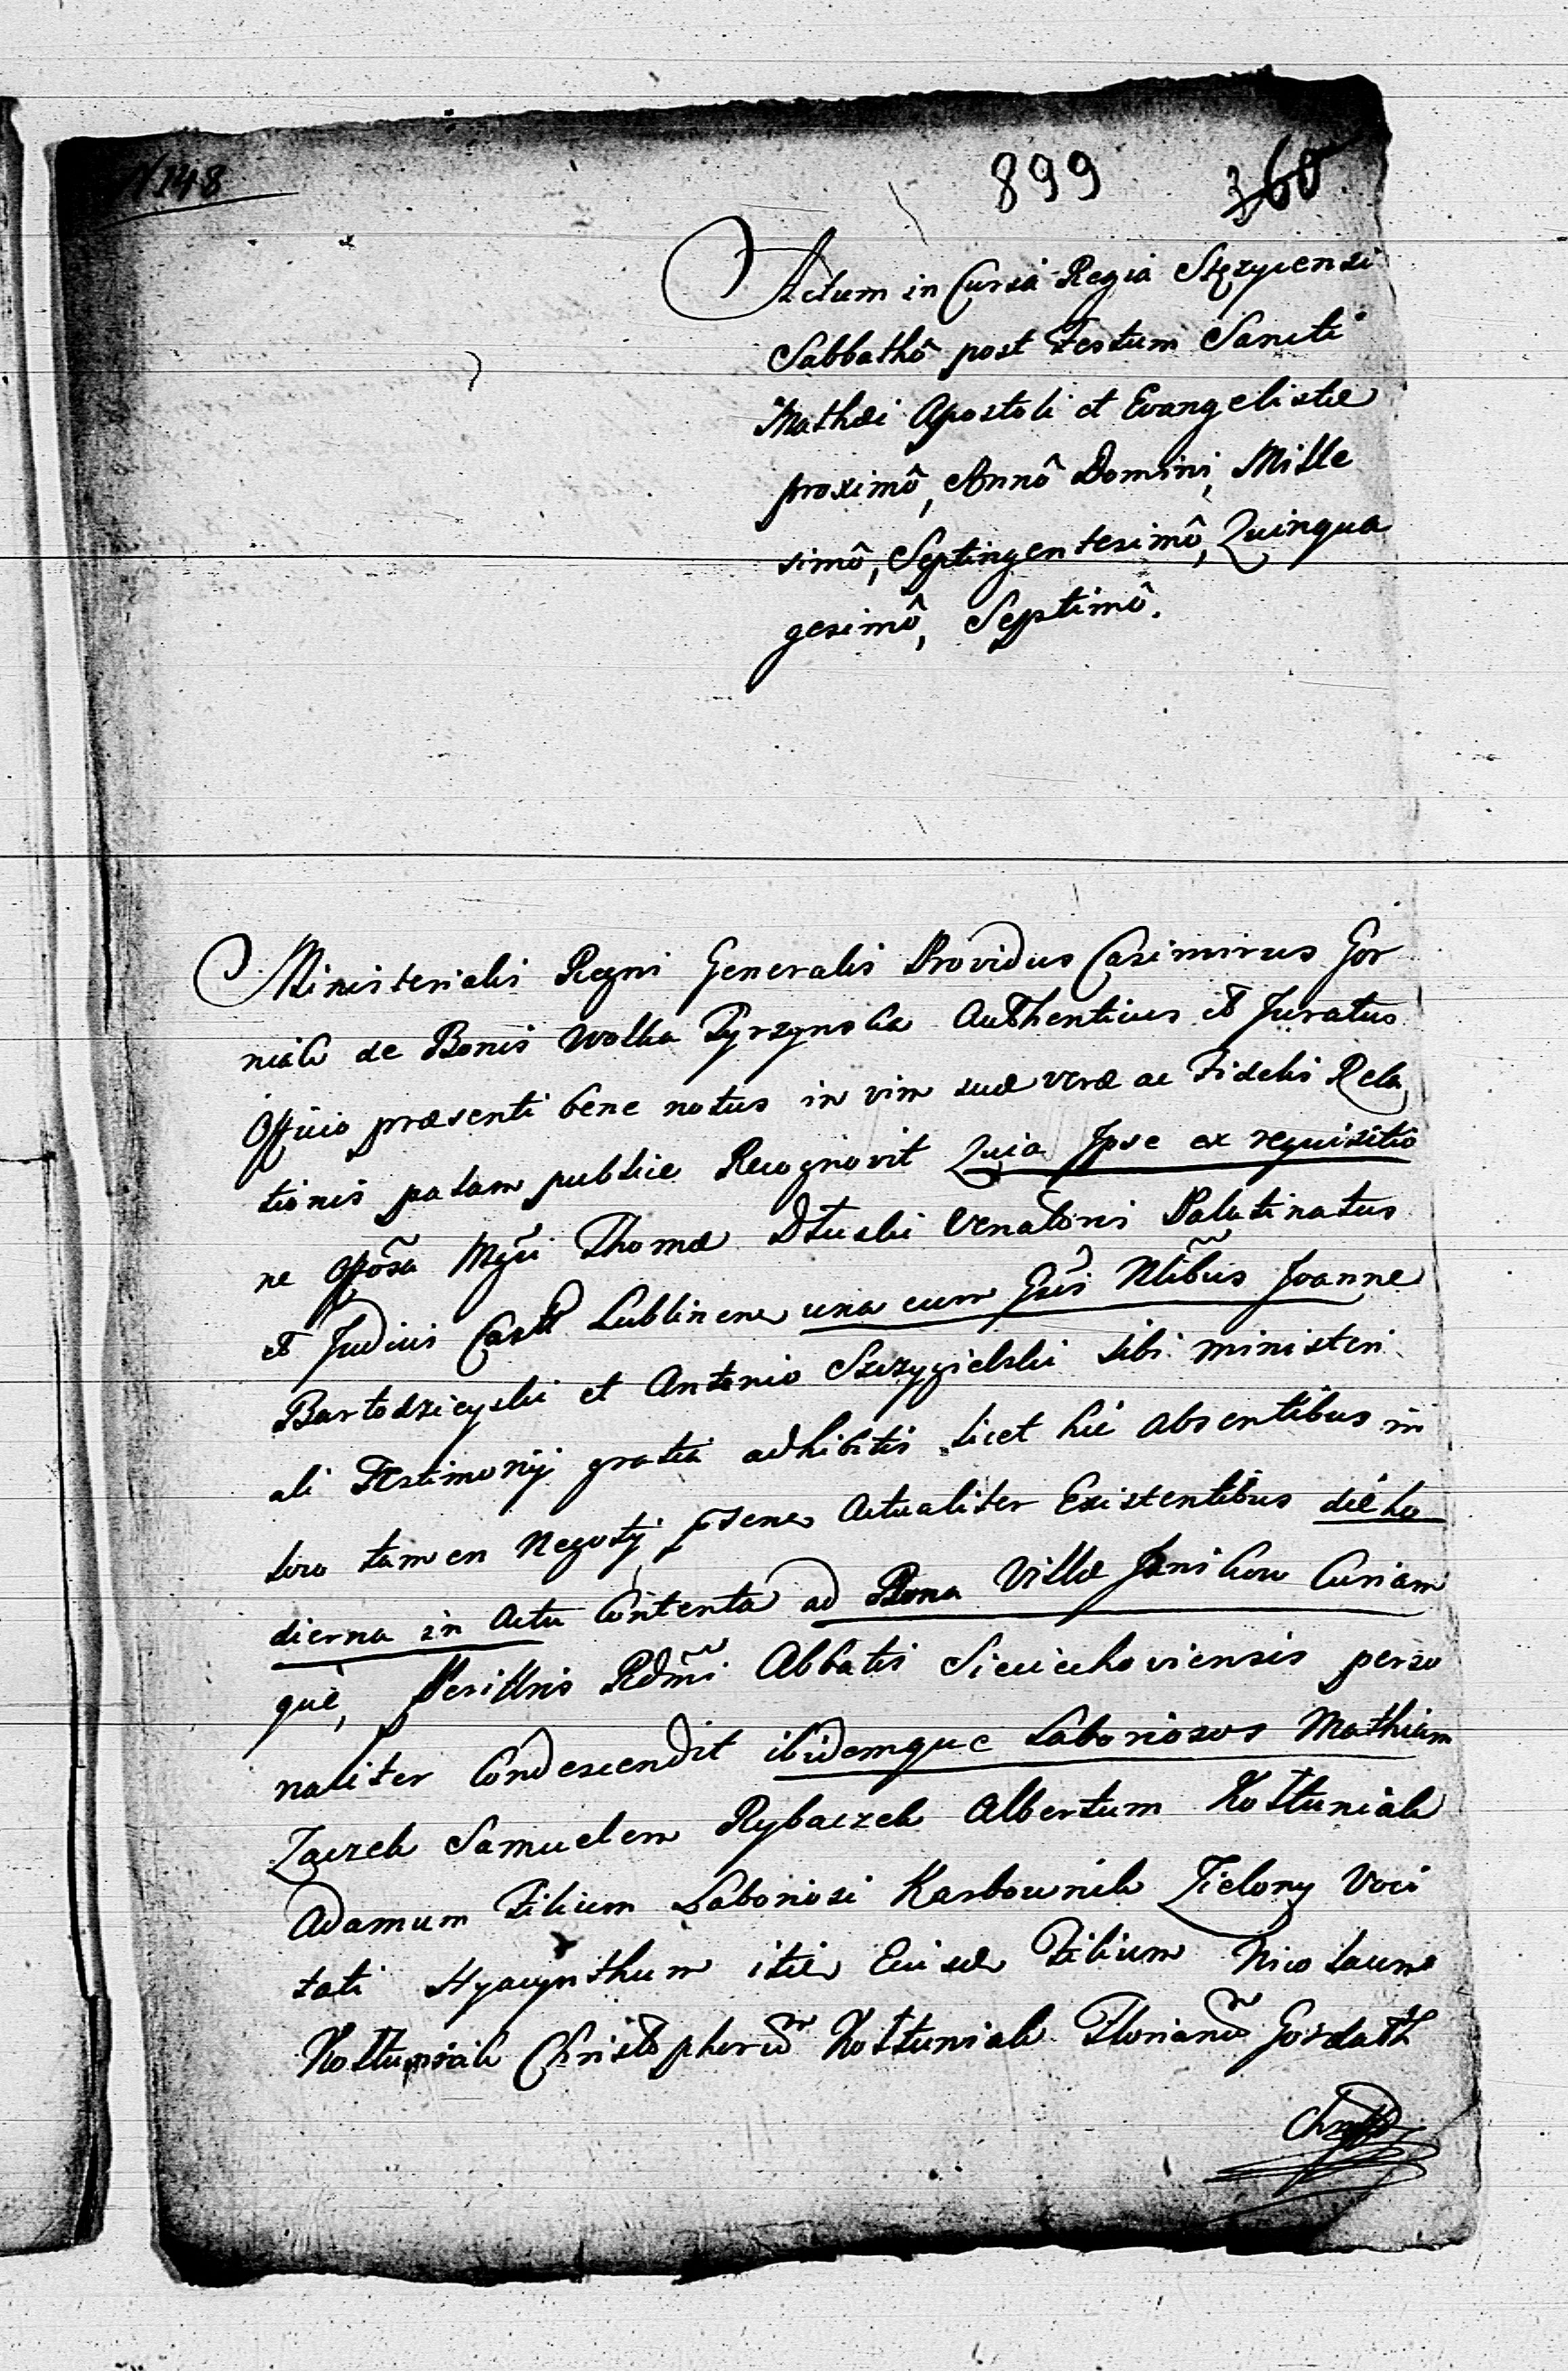 N 148
899 360
Actum in Curia Regia Stęzycensi
Sabbathô post Festum Sancti
Mathæi Apostoli et Evangelistæ
proximô, Annô Domini, Mille
simô, Septingentesimô, Quinqua
gesimô, Septimô.
Ministerialis Regni Generalis Providus Casimirus Gor
niak de Bonis Wolka Tyrzynska Authenticus et Juratus
Officio præsenti bene notus in vim suæ veræ ac Fidelis Rela
tionis palam publice Recognovit Quia Ipse ex requisitio
ne Gfōsa Mgci Thomæ Dłuski Venatoris Palatinatus
et Judicis Cast Lublinen una cum Gñsi Nlibus Joanne
Bartodzieyski et Antonio Szczygielski sibi ministeri
ali Testimonij gratia adhibitis licet hic absentibus in
loco tamen Negotij psene Actualiter Existentibus die ho
dierna in Actu Contenta ad Bona Villæ Janikow Curiam
què, Perillris Rdmi Abbatis Sieciechoviensis perso
naliter Condescendit ibidemque Laboriosos Mathiam
Zaczek Samuelem Rybaczek Albertum Kołtuniak
Adamum Filium Laboriosi Karbownik Zielony Voci
tati Hyacynthum itid Eiusd Filium Nicolaum
Kołtuniak Christopherum Kołtuniak Florianum